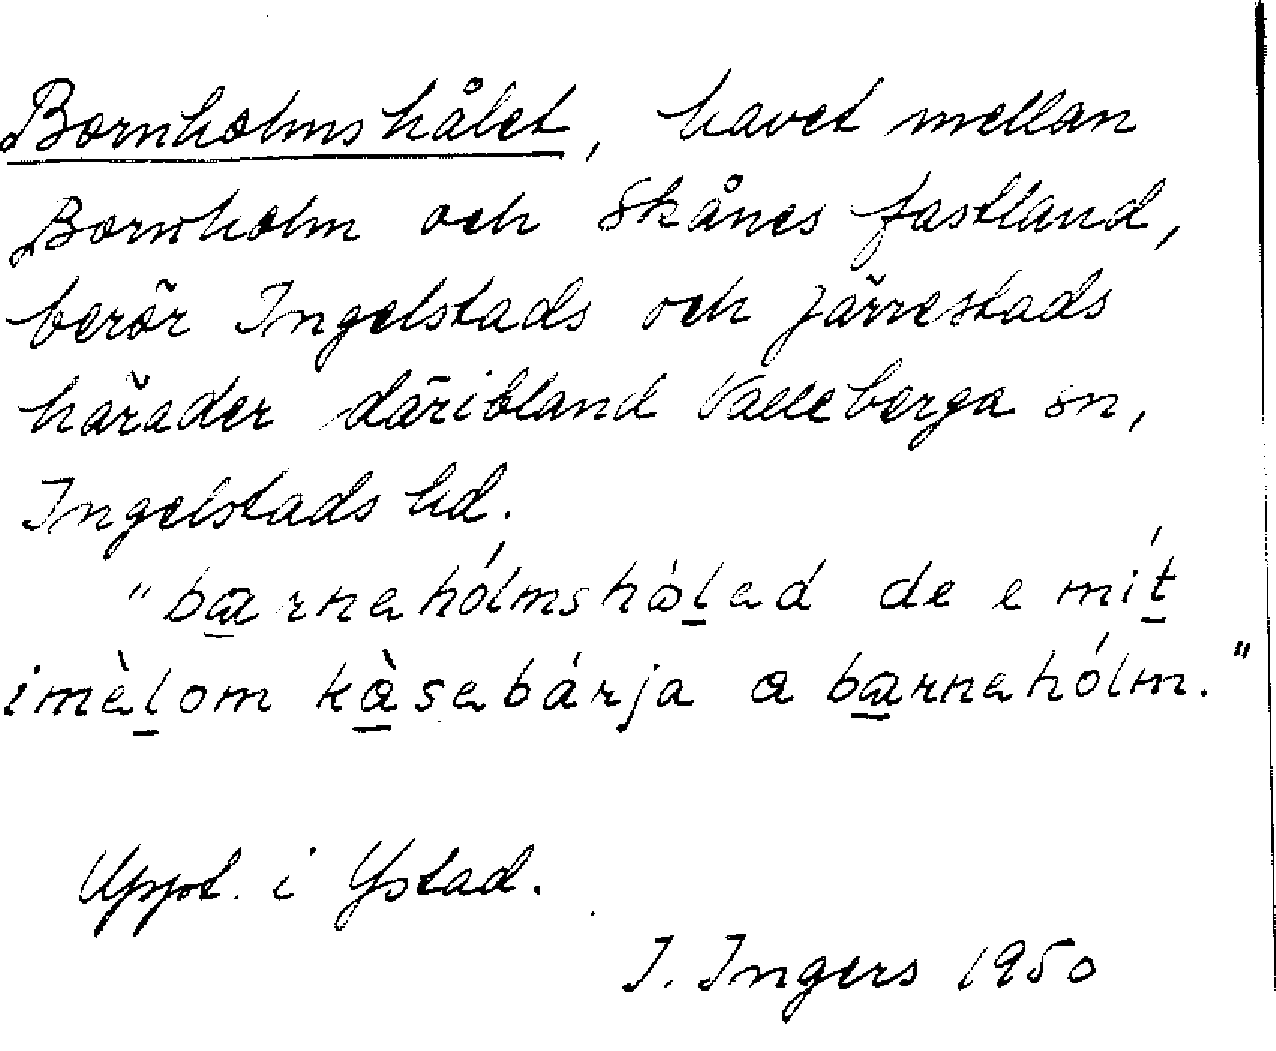 Bornholmshålet, havet mellan
Bornholm och Skånes fastland,
berör Ingelstads och Järrestads
härader däribland Valleberga sn,
Ingelstads hd.
"barnahólmshòlad de e mít
imèlom kàsabárja a barnahólm."
Uppt. i Ystad.
I. Ingers 1950